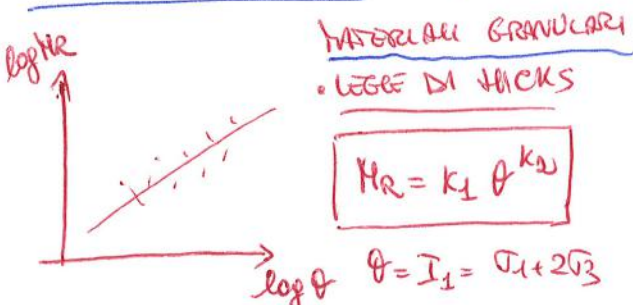 log MR
MATERIALI GRANULARI
• LEGGE DI HICKS
MR = K1 θ^K2
log θ
θ = I1 = σ1 + 2σ3